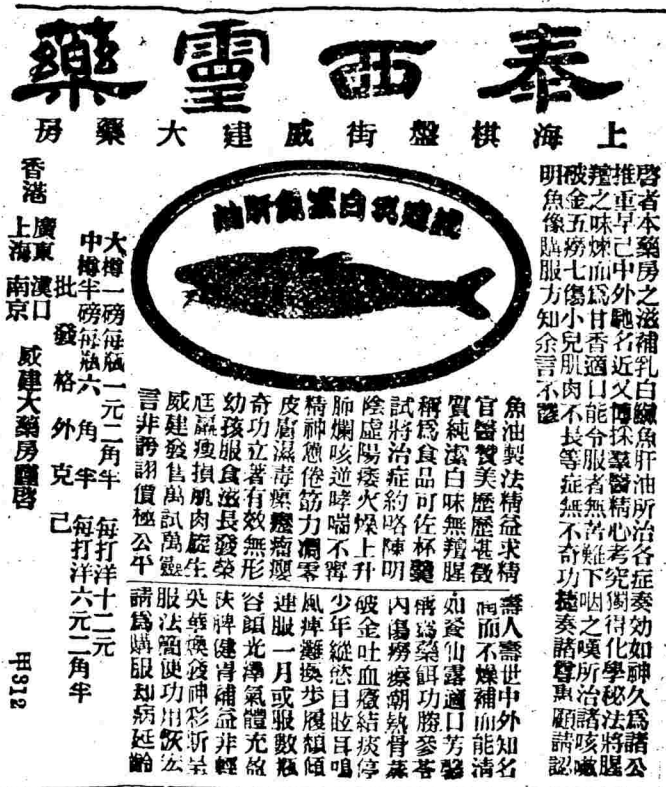 泰西靈藥
上海棋盤街威建大藥房
啓者本藥房之滋補乳白鰵魚肝油所治各症奏効如神久為諸公
推重早已中外馳名近又博採羣醫精心考究獨得化學秘法將腥
羶之味煉而為甘香適口能令服者無苦難下咽之嘆所治諸咳嗽
破金五癆七傷小兒肌肉不長等症無不奇功捷奏諸尊惠顧請認
明魚像購服方知余言不謬
威建乳白鰵魚肝油
魚油製法精益求精
官醫贊美歷歷甚徵
質純潔白味無羶腥
稱為食品可佐杯羹
試將治症約略陳明
陰虛陽痿火燥上升
肺爛咳逆哮喘不寧
精神憊倦筋力凋零
皮膚濕毒瘰癧瘤癭
奇功立著有效無形
幼孩服食滋長發榮
尫羸瘦損肌肉旋生
威建發售萬試萬靈
言非誇詡價極公平
壽人壽世中外知名
潤而不燥補而能清
如餐仙露適口芳馨
稱為藥餌功勝參苓
內傷癆瘵潮熱骨蒸
破金吐血癥結痰停
少年縱慾目眩耳鳴
風痺難換步履傾
連服一月或服數瓶
容顏光澤氣體充盈
扶脾健胃補益非輕
英華煥發神彩斯呈
服法簡便功用恢宏
請為購服却病延齡
大樽一磅每瓶一元二角半 每打洋十二元
中樽半磅每瓶六角半 每打洋六元二角半
批發格外克己
香港 廣東 漢口
上海 南京
威建大藥房謹啓
甲312